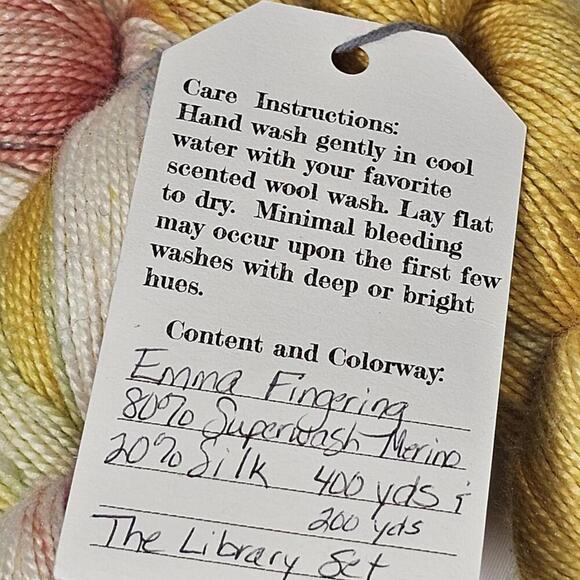 Care Instructions:
Hand wash gently in cool
water with your favorite
scented wool wash. Lay flat
to dry. Minimal bleeding
may occur upon the first few
washes with deep or bright
hues.
Content and Colorway:
Emma Fingering
80% Superwash Merino
20% Silk 400 yds &
200 yds
The Library Set